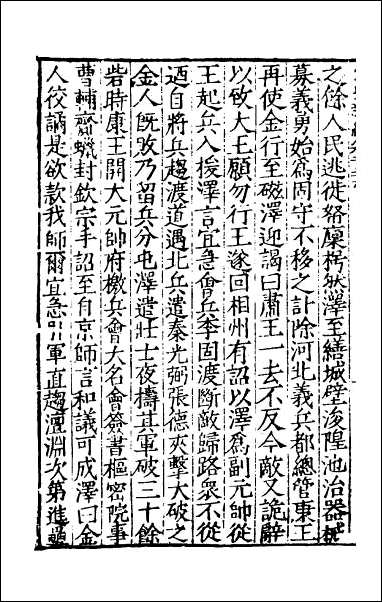 之餘人民逃徙帑廩枵然澤至繕城壁浚隍池治器械
募義勇始爲固守不移之計除河北義兵都總管康王
再使金行至磁澤迎謁曰肅王一去不反今敵又詭辭
以致大王願勿行王遂回相州有詔以澤爲副元帥從
王起兵入援澤言宜急會兵李固渡斷敵歸路衆不從
迺自將兵趨渡道遇北兵遣秦光弼張德夾擊大破之
金人既敗乃留兵分屯澤遣壯士夜擣其軍破三十餘
砦時康王開大元帥府檄兵會大名會簽書樞密院事
曹輔齎蠟封欽宗手詔至自京師言和議可成澤曰金
人狡譎是欲款我師爾宜急引軍直趨澶淵次第進壘